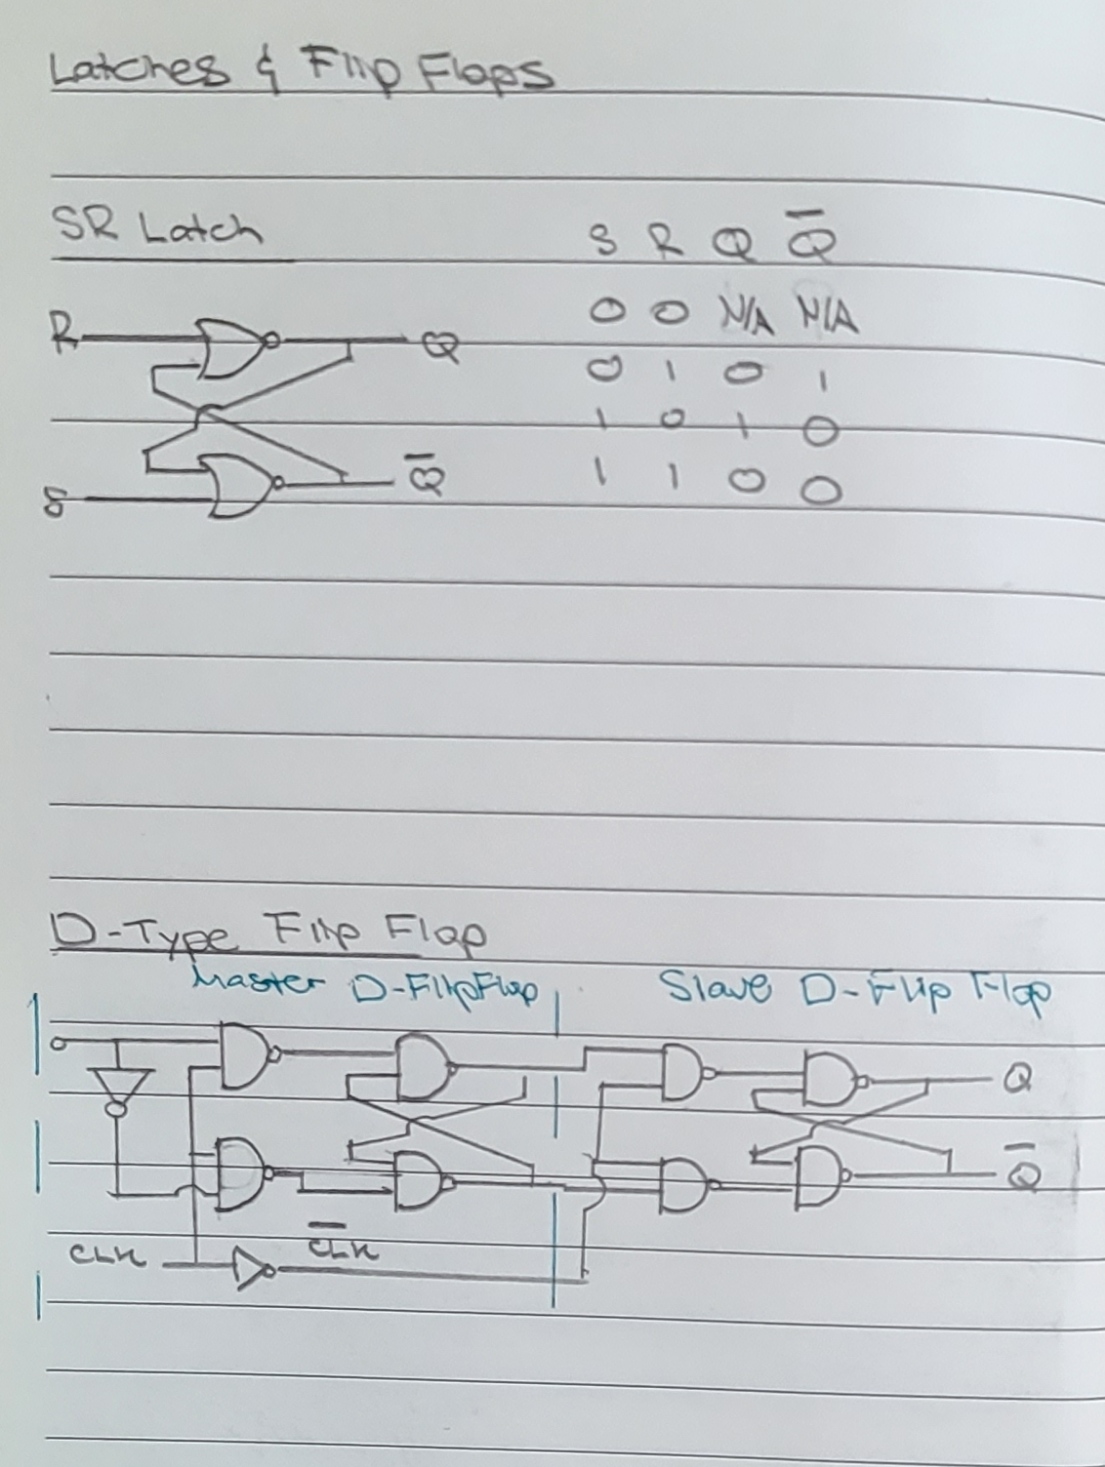 Latches & Flip Flops
SR Latch
S R Q Q̅
0 0 N/A N/A
0 1 0 1
1 0 1 0
1 1 0 0
R
Q
Q̅
S
D-Type Flip Flop
Master D-FlipFlop
Slave D-Flip Flop
Q
Q̅
CLK
C̅L̅K̅